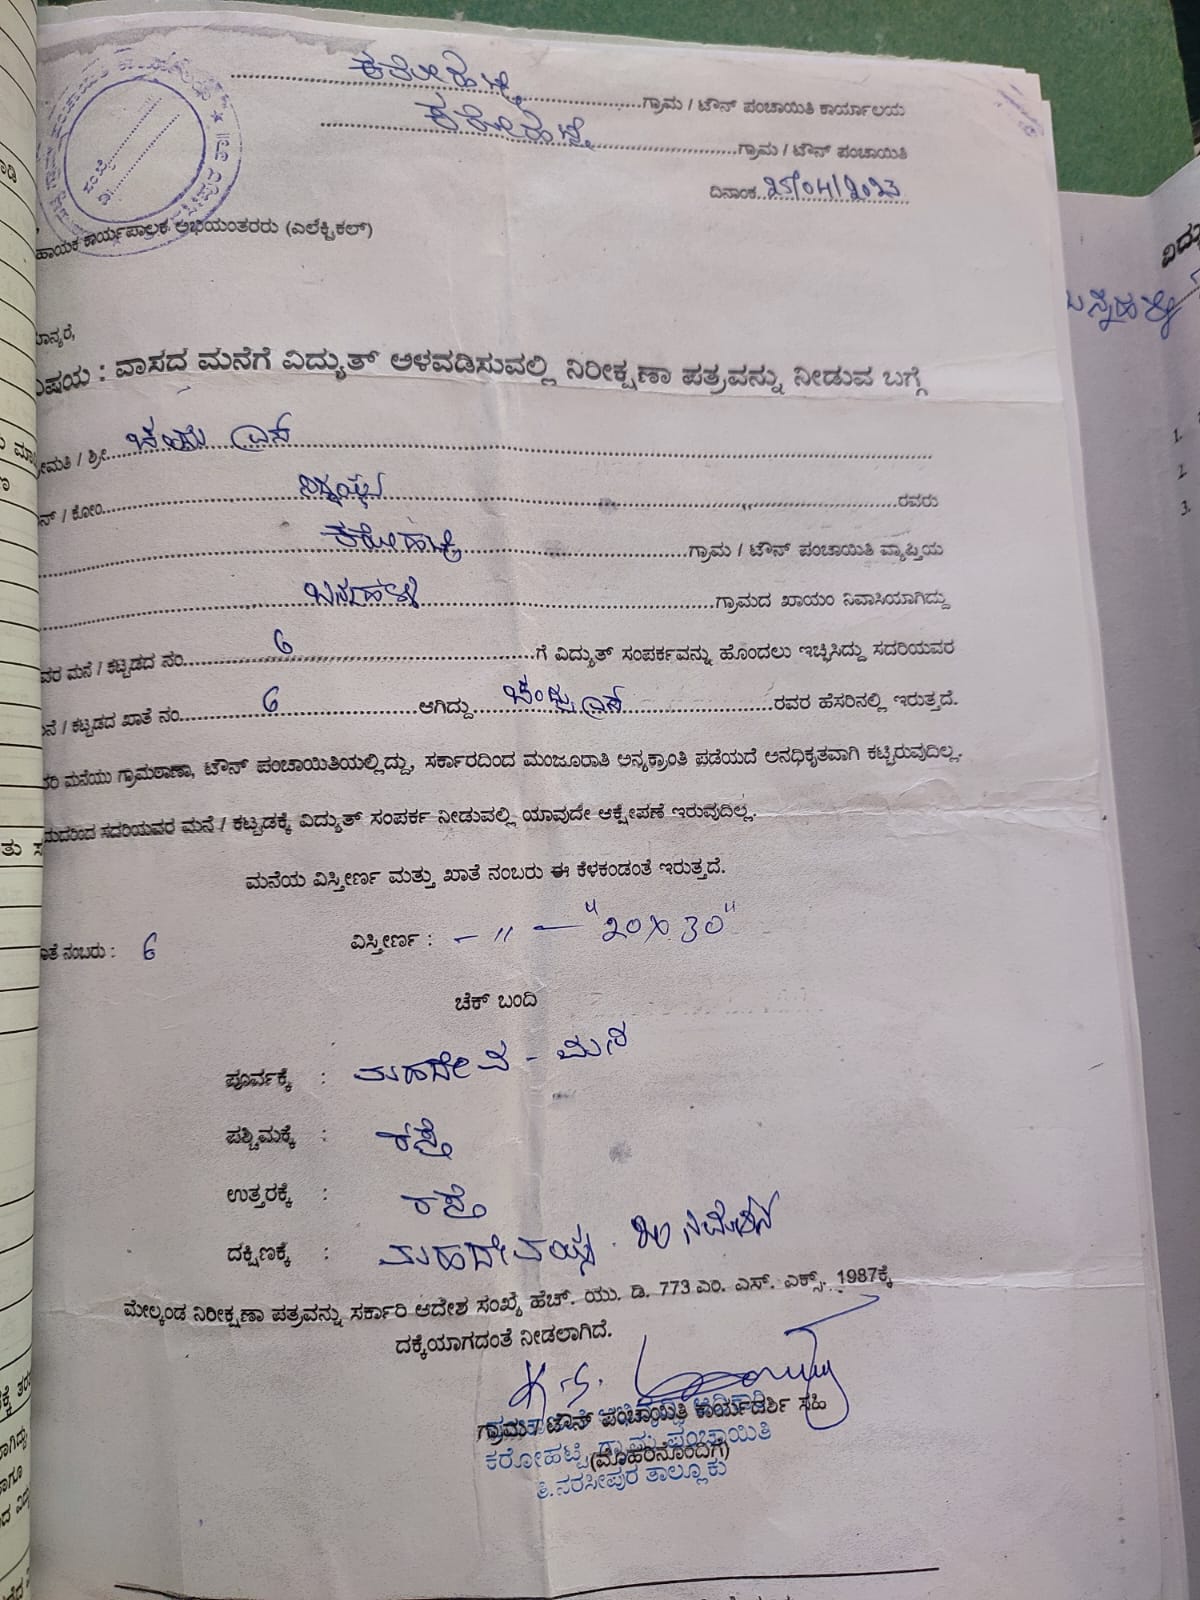 ಕರೋಹಟ್ಟಿ ಗ್ರಾಮ / ಟೌನ್ ಪಂಚಾಯಿತಿ ಕಾರ್ಯಾಲಯ
ಕರೋಹಟ್ಟಿ ಗ್ರಾಮ / ಟೌನ್ ಪಂಚಾಯಿತಿ
ದಿನಾಂಕ 25/04/2023
ಹಾಯಕ ಕಾರ್ಯಪಾಲಕ ಅಭಿಯಂತರರು (ಎಲೆಕ್ಟ್ರಿಕಲ್)
ಮಾನ್ಯರೆ,
ವಿಷಯ : ವಾಸದ ಮನೆಗೆ ವಿದ್ಯುತ್ ಅಳವಡಿಸುವಲ್ಲಿ ನಿರೀಕ್ಷಣಾ ಪತ್ರವನ್ನು ನೀಡುವ ಬಗ್ಗೆ
ಮತಿ / ಶ್ರೀ ಚಂದ್ರು ಎಸ್
ನ್ / ಕೋಂ ರವರು
ಕರೋಹಟ್ಟಿ ಗ್ರಾಮ / ಟೌನ್ ಪಂಚಾಯಿತಿ ವ್ಯಾಪ್ತಿಯ
ಬನ್ನಹಳ್ಳಿ ಗ್ರಾಮದ ಖಾಯಂ ನಿವಾಸಿಯಾಗಿದ್ದು
ವರ ಮನೆ / ಕಟ್ಟಡದ ನಂ 6 ಗೆ ವಿದ್ಯುತ್ ಸಂಪರ್ಕವನ್ನು ಹೊಂದಲು ಇಚ್ಛಿಸಿದ್ದು ಸದರಿಯವರ
ನೆ / ಕಟ್ಟಡದ ಖಾತೆ ನಂ 6 ಆಗಿದ್ದು ಚಂದ್ರು ಎಸ್ ರವರ ಹೆಸರಿನಲ್ಲಿ ಇರುತ್ತದೆ.
ರಿ ಮನೆಯು ಗ್ರಾಮಠಾಣಾ, ಟೌನ್ ಪಂಚಾಯಿತಿಯಲ್ಲಿದ್ದು, ಸರ್ಕಾರದಿಂದ ಮಂಜೂರಾತಿ ಅನ್ಯಕ್ರಾಂತಿ ಪಡೆಯದೆ ಅನಧಿಕೃತವಾಗಿ ಕಟ್ಟಿರುವುದಿಲ್ಲ.
ದುದರಿಂದ ಸದರಿಯವರ ಮನೆ / ಕಟ್ಟಡಕ್ಕೆ ವಿದ್ಯುತ್ ಸಂಪರ್ಕ ನೀಡುವಲ್ಲಿ ಯಾವುದೇ ಆಕ್ಷೇಪಣೆ ಇರುವುದಿಲ್ಲ.
ಮನೆಯ ವಿಸ್ತೀರ್ಣ ಮತ್ತು ಖಾತೆ ನಂಬರು ಈ ಕೆಳಕಂಡಂತೆ ಇರುತ್ತದೆ.
ಾತೆ ನಂಬರು : 6 ವಿಸ್ತೀರ್ಣ : – " – "20X30"
ಚೆಕ್ ಬಂದಿ
ಪೂರ್ವಕ್ಕೆ : ಮಹದೇವ - ಮನೆ
ಪಶ್ಚಿಮಕ್ಕೆ : ರಸ್ತೆ
ಉತ್ತರಕ್ಕೆ : ರಸ್ತೆ
ದಕ್ಷಿಣಕ್ಕೆ : ಮಹದೇವಯ್ಯ ನಿವೇಶನ
ಮೇಲ್ಕಂಡ ನಿರೀಕ್ಷಣಾ ಪತ್ರವನ್ನು ಸರ್ಕಾರಿ ಆದೇಶ ಸಂಖ್ಯೆ ಹೆಚ್. ಯು. ಡಿ. 773 ಎಂ. ಎಸ್. ಎಕ್ಸ್. 1987ಕ್ಕೆ
ದಕ್ಕೆಯಾಗದಂತೆ ನೀಡಲಾಗಿದೆ.
ಗ್ರಾಮ / ಟೌನ್ ಪಂಚಾಯಿತಿ ಕಾರ್ಯದರ್ಶಿ ಸಹಿ
(ಮೊಹರಿನೊಂದಿಗೆ)
ಕರೋಹಟ್ಟಿ ಗ್ರಾಮ ಪಂಚಾಯಿತಿ
ತಿ.ನರಸೀಪುರ ತಾಲ್ಲೂಕು
ಬನ್ನಹಳ್ಳಿ
1.
2.
3.